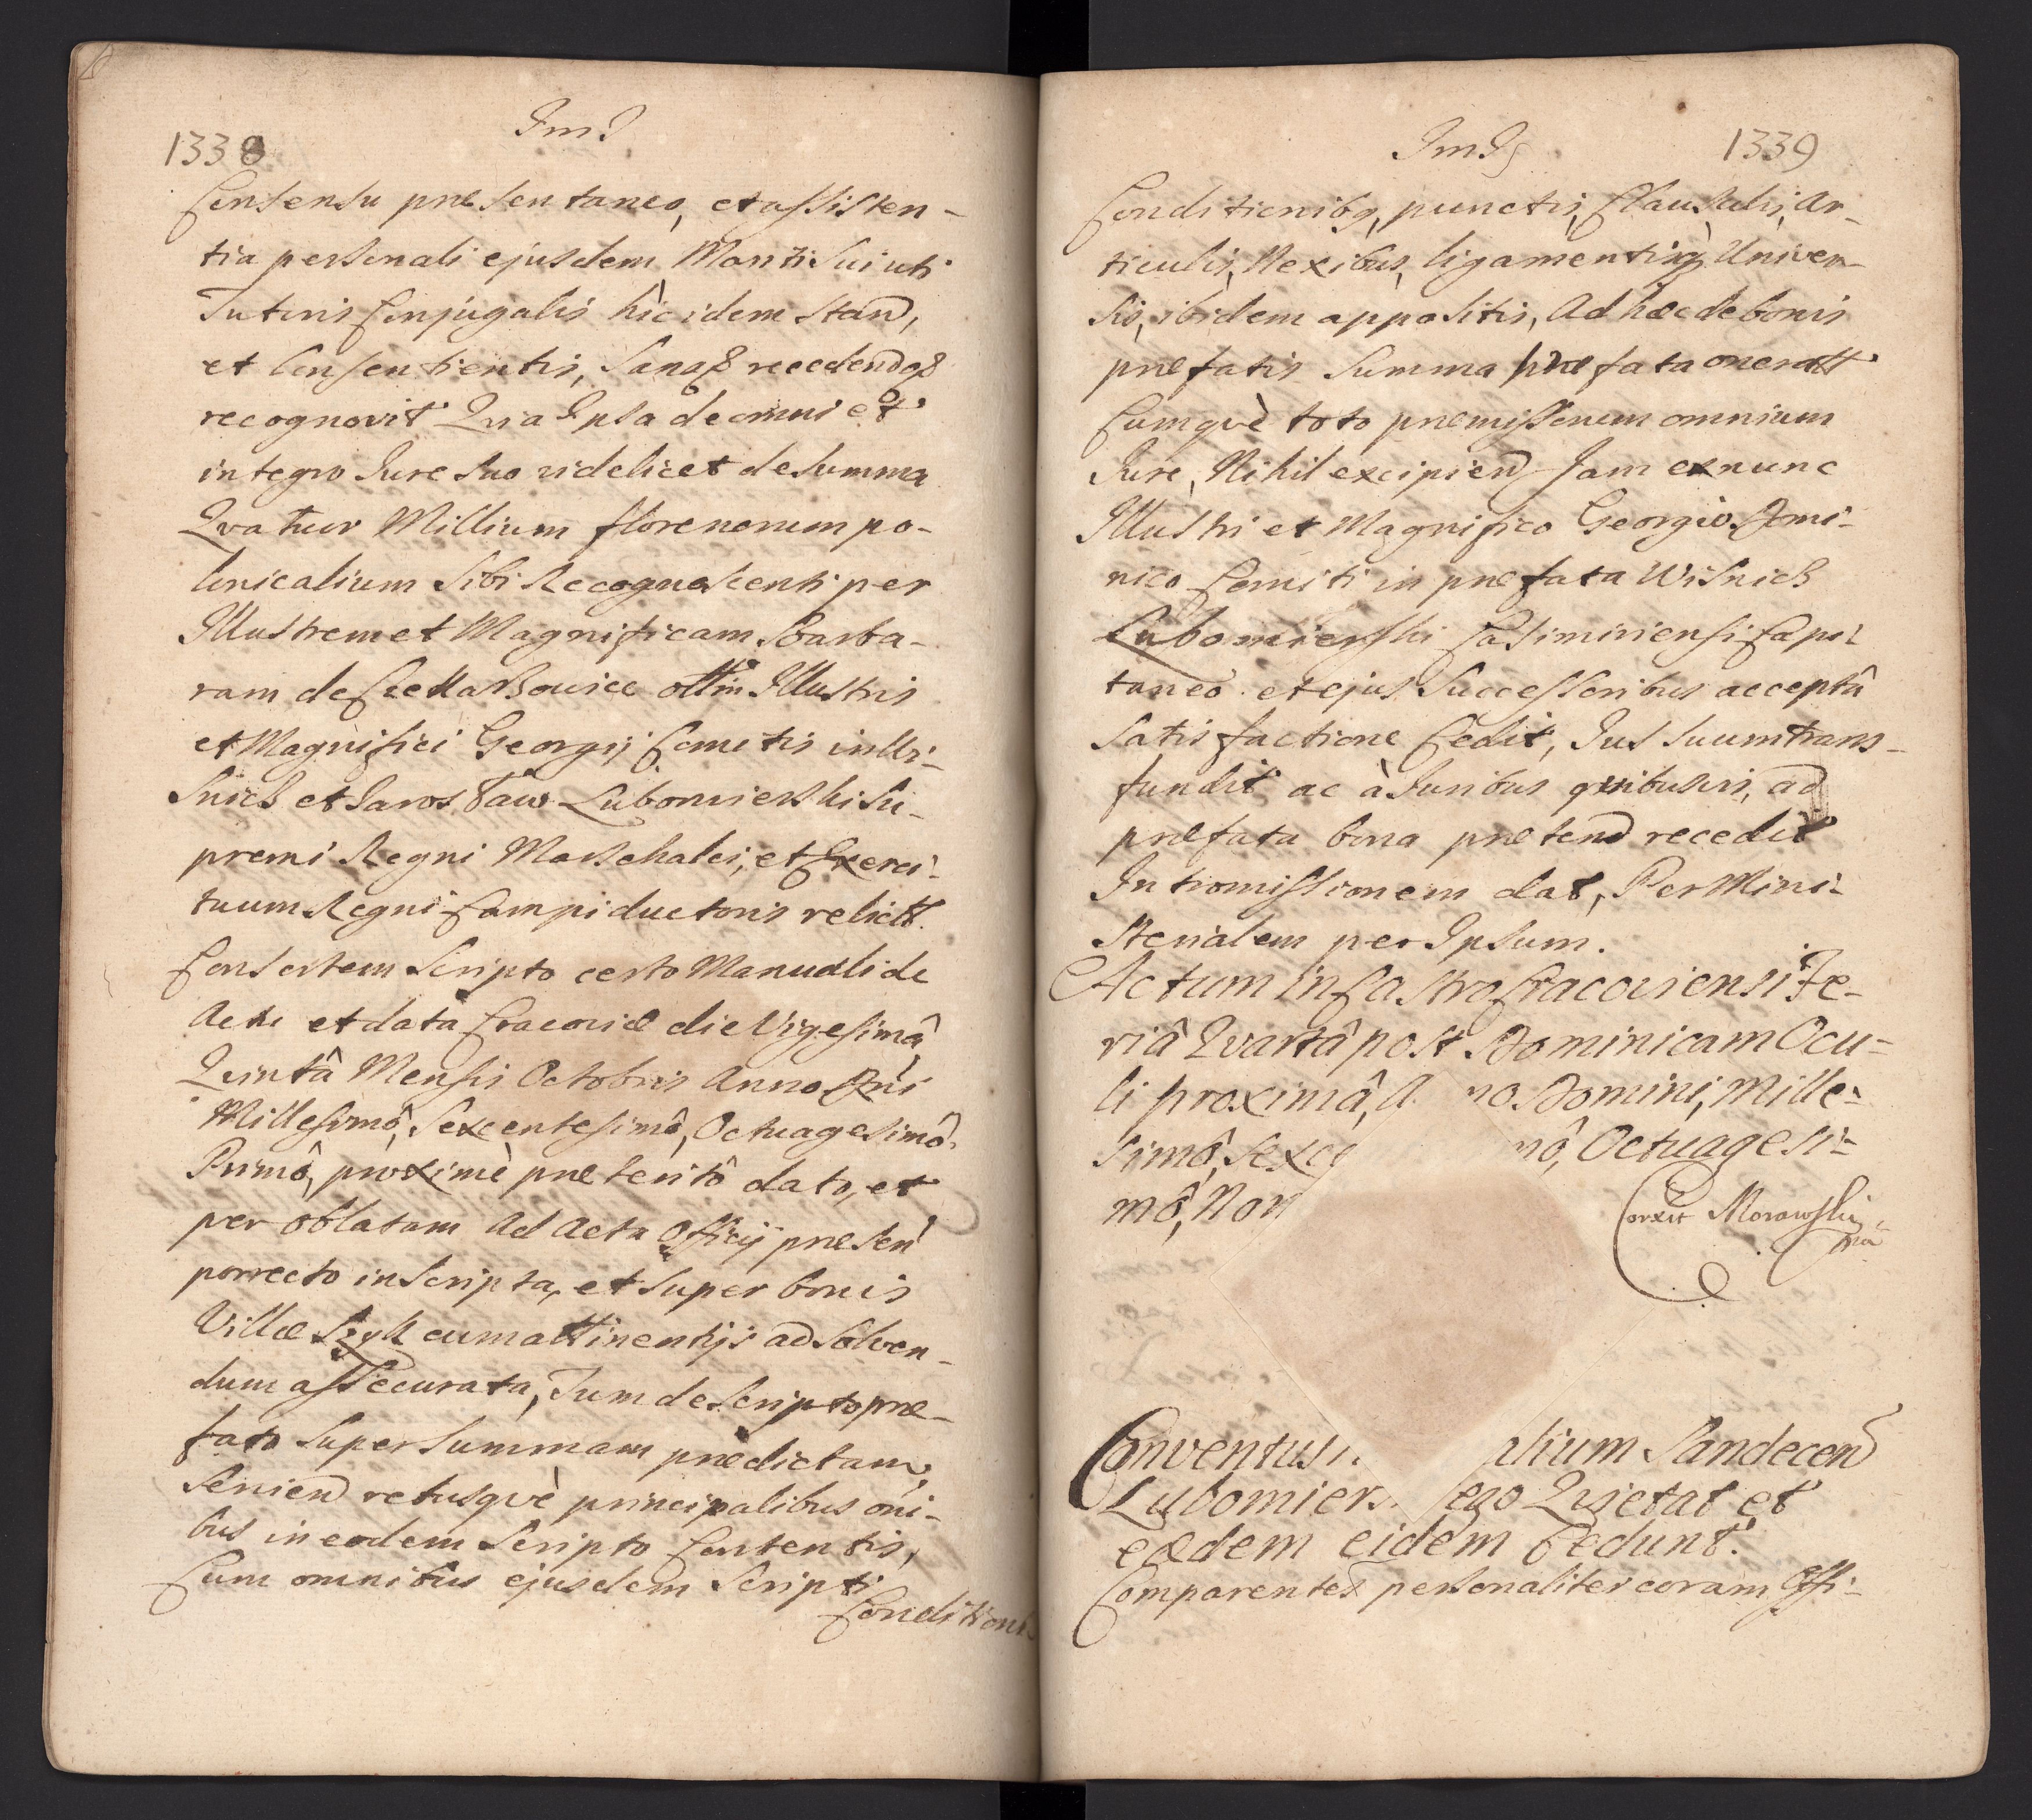 1338
Consensu præsentaneo, et assisten-
tia personali ejusdem Mariti sui uti
Tutoris Conjugalis hic idem stand,
et Consentientis,
recognovit Qvia Ipsa de omni et
integro Jure suo videlicet de summa
Qvatuor Millium florenorum po-
lonicalium sibi Recognoscenti per
Illustrem et Magnificam Barba-
ram de olim Illustris
et Magnifici Georgij Comitis in Wi-
snicz et Jarosław Lubomierski Su-
premi Regni Marschalci, et Exerci-
tuum Regni Campiductoris relict.
Consortem Scripto certo Manuali de
Actu et data Cracoviæ die Vigesimâ
Qvintâ Mensis Octobris Anno Dni
Millesimô, Sexcentesimô, Octuagesimô
Primô, proximè præteritô dato, et
per oblatam ad Acta Officij præsen
porrecto inscripta, et super bonis
Villæ Szyk cum attinentijs ad solven-
dum assecurata, Tum de Scripto præ-
fato super summam prædictam,
Servien retusqvè principalibus oni-
bus in eodem Scripto Contentis,
Cum omnibus ejusdem Scripti
Conditioni-
1339
Conditionibq, punctis, Clausulis, Ar-
ticulis, Nexibus, ligamentisq Univer-
sis, ibidem appositis, Ad hæc de bonis
præfatis summa præfata onerat
Cumqvè toto præmissorum omnium
Jure, Nihil excipiend Jam ex nunc
Illustri et Magnifico Georgio Domi-
nico Comiti in præfata Wisnicz
Lubomierski Casimiriensi Capi-
taneo et ejus Successoribus acceptâ
satisfactione Cedit, Jus suum trans-
fundit ac à Juribus qvibusvis, ad
præfata bona prætend recedit
Intromissionem dat, Per Mini-
sterialem per Ipsum.
Actum in Castro Cracoviensi Fe-
riâ Qvartâ post Dominicam Ocu-
li proximâ, A no Domini, Mille-
simô, Sexce mô, Octuagesi-
mô, Non
Corrxit Morawski
mp
Conventus alium Sandecen
Lubomiers ego Qvietat et
eædem eidem Cedunt.
Comparentes personaliter coram Offi-